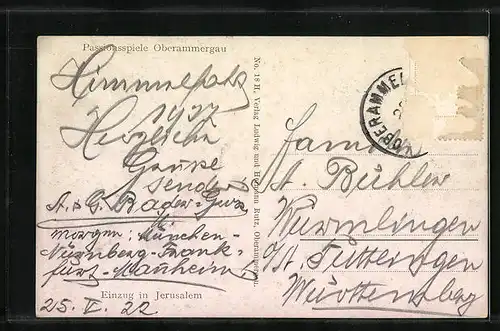 Passionsspiele Oberammergau
Himmelfahrt
Herzliche
Grüsse
senden
A. & G. Bader-
morgen: München-
Nürnberg-Frank-
furt-Manheim
25. V. 22
Einzug in Jerusalem
No. 18 H. Verlag Ludwig und Hermann Rutz, Oberammergau.
OBERAMMER
Fam.
A. Bühler
Wurmlingen
O/A. Tuttlingen
Württemberg